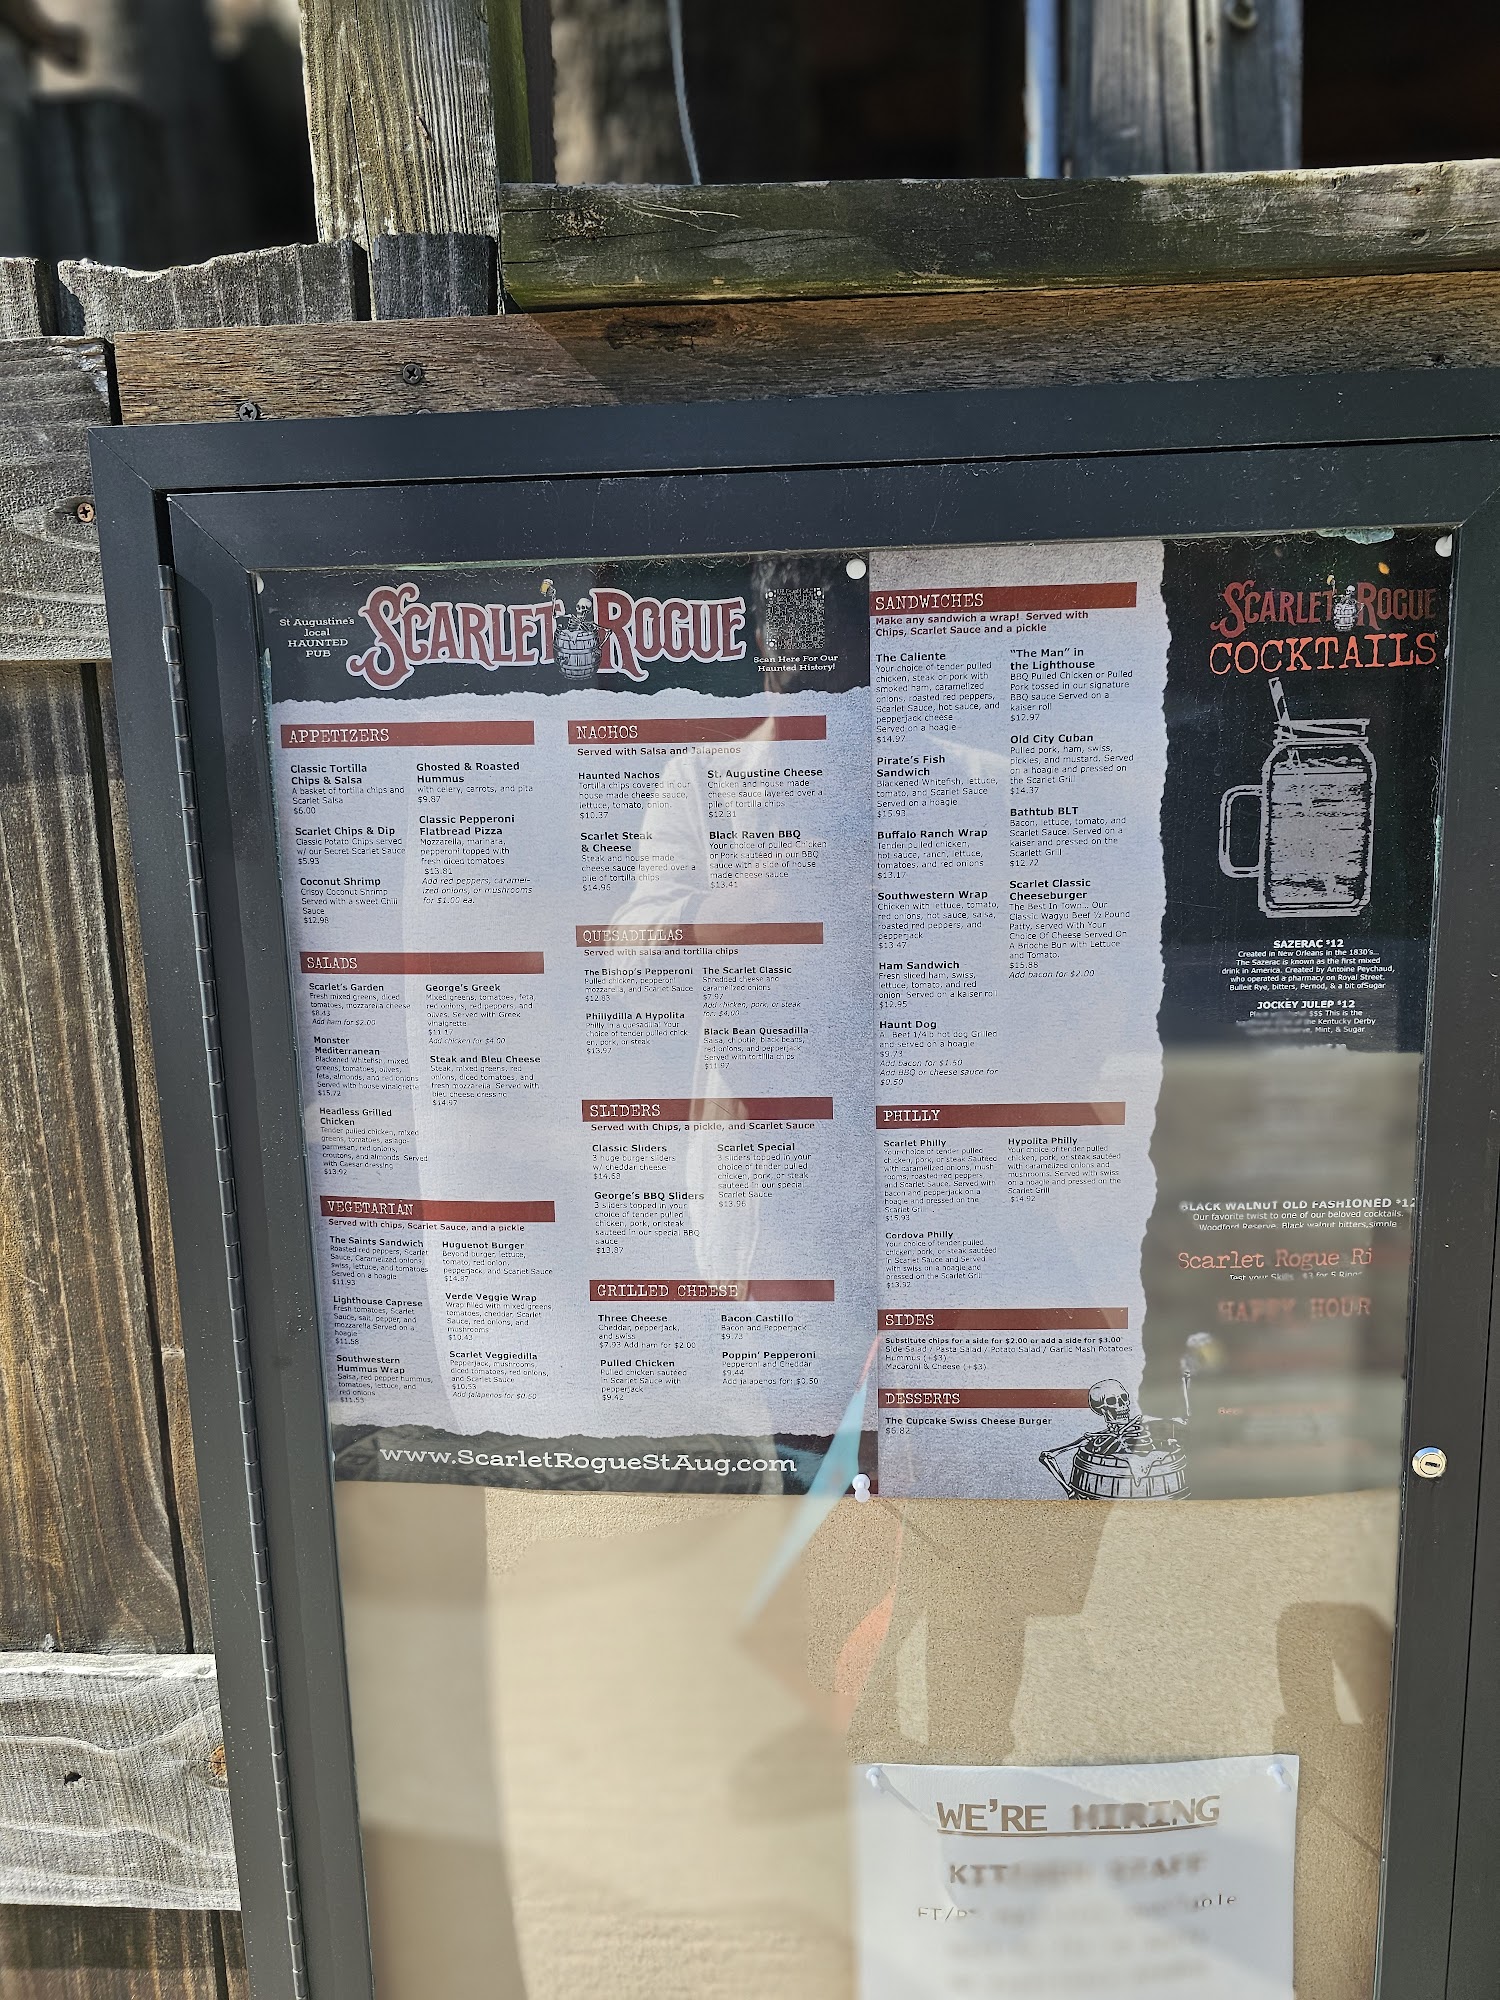 St Augustine's
local
HAUNTED
PUB
SCARLET ROGUE
Scan Here For Our
Haunted History!
APPETIZERS
Classic Tortilla
Chips & Salsa
A basket of tortilla chips and
Scarlet Salsa
$6.00
Scarlet Chips & Dip
Classic Potato Chips served
w/ our Secret Scarlet Sauce
$5.93
Coconut Shrimp
Crispy Coconut Shrimp
Served with a sweet Chili
Sauce
$12.98
Ghosted & Roasted
Hummus
with celery, carrots, and pita
$9.87
Classic Pepperoni
Flatbread Pizza
Mozzarella, marinara,
pepperoni topped with
fresh diced tomatoes
$13.81
Add red peppers, caramel-
ized onions, or mushrooms
for $1.00 ea.
SALADS
Scarlet's Garden
Fresh mixed greens, diced
tomatoes, mozzarella cheese
$8.43
Add ham for $2.00
Monster
Mediterranean
Blackened Whitefish, mixed
greens, tomatoes, olives,
feta, almonds, and red onions
Served with house vinaigrette
$15.72
Headless Grilled
Chicken
Tender pulled chicken, mixed
greens, tomatoes, asiago-
parmesan, red onions,
croutons, and almonds. Served
with Caesar dressing
$13.92
George's Greek
Mixed greens, tomatoes, feta,
red onions, red peppers, and
olives. Served with Greek
vinaigrette
Add chicken for $4.00
Steak and Bleu Cheese
Steak, mixed greens, red
onions, diced tomatoes, and
fresh mozzarella. Served with
bleu cheese dressing
$14.97
VEGETARIAN
Served with chips, Scarlet Sauce, and a pickle
The Saints Sandwich
Roasted red peppers, Scarlet
Sauce, Caramelized onions,
swiss, lettuce, and tomatoes
Served on a hoagie
$11.93
Lighthouse Caprese
Fresh tomatoes, Scarlet
Sauce, salt, pepper, and
mozzarella Served on a
hoagie
$11.58
Southwestern
Hummus Wrap
Salsa, red pepper hummus,
tomatoes, lettuce, and
red onions
$11.53
Huguenot Burger
Beyond burger, lettuce,
tomato, red onion,
pepperjack, and Scarlet Sauce
$14.87
Verde Veggie Wrap
Wrap filled with mixed greens,
tomatoes, cheddar, Scarlet
Sauce, red onions, and
mushrooms
$10.43
Scarlet Veggiedilla
Pepperjack, mushrooms,
diced tomatoes, red onions,
and Scarlet Sauce
$10.53
Add jalapenos for $0.50
NACHOS
Served with Salsa and Jalapenos
Haunted Nachos
Tortilla chips covered in our
house made cheese sauce,
lettuce, tomato, onion.
$10.37
Scarlet Steak
& Cheese
Steak and house made
cheese sauce layered over a
pile of tortilla chips
$14.96
St. Augustine Cheese
Chicken and house made
cheese sauce layered over a
pile of tortilla chips
$12.31
Black Raven BBQ
Your choice of pulled Chicken
or Pork sautéed in our BBQ
sauce with a side of house
made cheese sauce
$13.41
QUESADILLAS
Served with salsa and tortilla chips
The Bishop's Pepperoni
Pulled chicken, pepperoni
mozzarella, and Scarlet Sauce
$12.83
Phillydilla A Hypolita
Philly in a quesadilla! Your
choice of tender pulled chick-
en, pork, or steak
$13.97
The Scarlet Classic
Shredded cheese and
caramelized onions
$7.97
Add chicken, pork, or steak
for: $4.00
Black Bean Quesadilla
Salsa, chipotle, black beans,
red onions, and pepperjack
Served with tortilla chips
$11.97
SLIDERS
Served with Chips, a pickle, and Scarlet Sauce
Classic Sliders
3 huge burger sliders
w/ cheddar cheese
$14.63
George's BBQ Sliders
3 sliders topped in your
choice of tender pulled
chicken, pork, or steak
sauteed in our special BBQ
sauce
$13.87
Scarlet Special
3 sliders topped in your
choice of tender pulled
chicken, pork, or steak
sauteed in our special
Scarlet Sauce
$13.96
GRILLED CHEESE
Three Cheese
Cheddar, pepperjack,
and swiss
$7.93 Add ham for $2.00
Pulled Chicken
Pulled chicken sauteed
in Scarlet Sauce with
pepperjack
$9.42
Bacon Castillo
Bacon and Pepperjack
$9.73
Poppin' Pepperoni
Pepperoni and Cheddar
$9.44
Add jalapenos for: $0.50
www.ScarletRogueStAug.com
SANDWICHES
Make any sandwich a wrap! Served with
Chips, Scarlet Sauce and a pickle
The Caliente
Your choice of tender pulled
chicken, steak or pork with
smoked ham, caramelized
onions, roasted red peppers,
Scarlet Sauce, hot sauce, and
pepperjack cheese
Served on a hoagie
$14.97
Pirate's Fish
Sandwich
Blackened Whitefish, lettuce,
tomato, and Scarlet Sauce
Served on a hoagie
$15.93
Buffalo Ranch Wrap
Tender pulled chicken,
hot sauce, ranch, lettuce,
tomatoes, and red onions
$13.17
Southwestern Wrap
Chicken with lettuce, tomato,
red onions, hot sauce, salsa,
roasted red peppers, and
pepperjack
$13.47
Ham Sandwich
Fresh sliced ham, swiss,
lettuce, tomato, and red
onion. Served on a kaiser roll
$12.95
Haunt Dog
All Beef 1/4lb hot dog Grilled
and served on a hoagie
$9.73
Add bacon for $1.50
Add BBQ or cheese sauce for
$0.50
"The Man" in
the Lighthouse
BBQ Pulled Chicken or Pulled
Pork tossed in our signature
BBQ sauce Served on a
kaiser roll
$12.97
Old City Cuban
Pulled pork, ham, swiss,
pickles, and mustard. Served
on a hoagie and pressed on
the Scarlet Grill
$14.37
Bathtub BLT
Bacon, lettuce, tomato, and
Scarlet Sauce. Served on a
kaiser and pressed on the
Scarlett Grill
$12.72
Scarlet Classic
Cheeseburger
The Best In Town... Our
Classic Wagyu Beef ½ Pound
Patty, served With Your
Choice Of Cheese Served On
A Brioche Bun with Lettuce
and Tomato.
$15.88
Add bacon for $2.00
PHILLY
Scarlet Philly
Your choice of tender pulled
chicken, pork, or steak Sautéed
with caramelized onions, mush
rooms, roasted red peppers
and Scarlet Sauce. Served with
bacon and pepperjack on a
hoagie and pressed on the
Scarlet Grill
$15.93
Cordova Philly
Your choice of tender pulled
chicken, pork, or steak sautéed
in Scarlet Sauce and Served
with swiss on a hoagie and
pressed on the Scarlet Grill
$13.92
Hypolita Philly
Your choice of tender pulled
chicken, pork, or steak sautéed
with caramelized onions and
mushrooms. Served with swiss
on a hoagie and pressed on the
Scarlet Grill
$14.92
SIDES
Substitute chips for a side for $2.00 or add a side for $3.00
Side Salad / Pasta Salad / Potato Salad / Garlic Mash Potatoes
Hummus (+$3)
Macaroni & Cheese (+$3)
DESSERTS
The Cupcake Swiss Cheese Burger
$6.82
SCARLET ROGUE
COCKTAILS
SAZERAC $12
Created in New Orleans in the 1830's...
The Sazerac is known as the first mixed
drink in America. Created by Antoine Peychaud,
who operated a pharmacy on Royal Street.
Bulleit Rye, bitters, Pernod, & a bit of Sugar
JOCKEY JULEP $12
$$$ This is the
the Kentucky Derby
Mint, & Sugar
BLACK WALNUT OLD FASHIONED $12
Our favorite twist to one of our beloved cocktails.
Woodford Reserve, Black walnut bitters, simple
Scarlet Rogue Ri
Test your Skills $3 for 5 Rings
HAPPY HOUR
WE'RE HIRING
KITCHEN STAFF